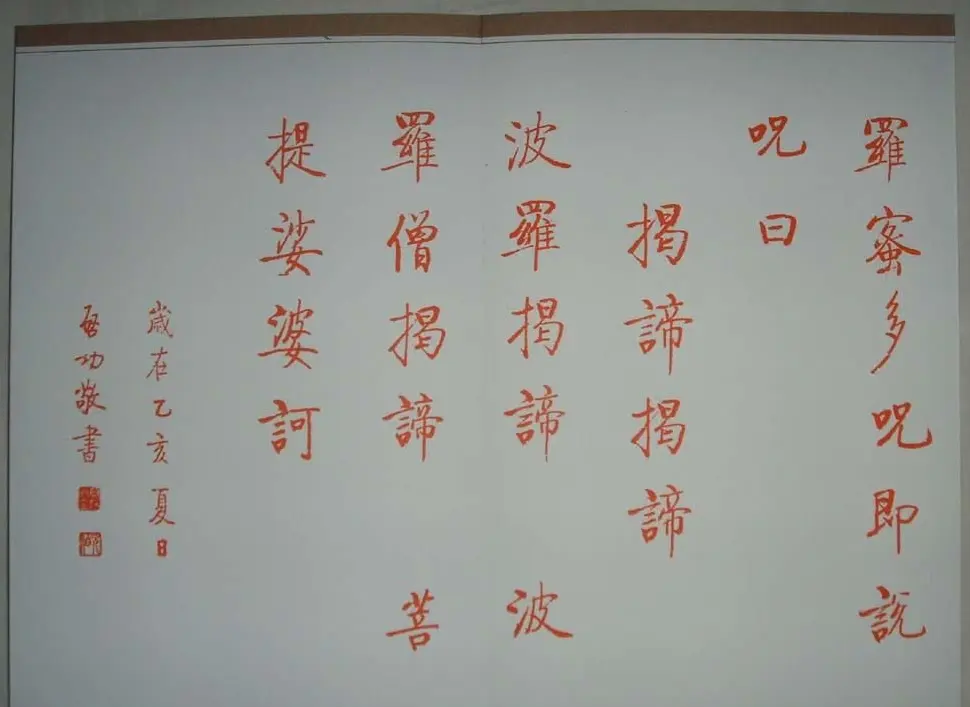 羅蜜多呪即說
呪曰
揭諦揭諦
波羅揭諦 波
羅僧揭諦 菩
提娑婆訶
歲在乙亥夏日
啟功敬書